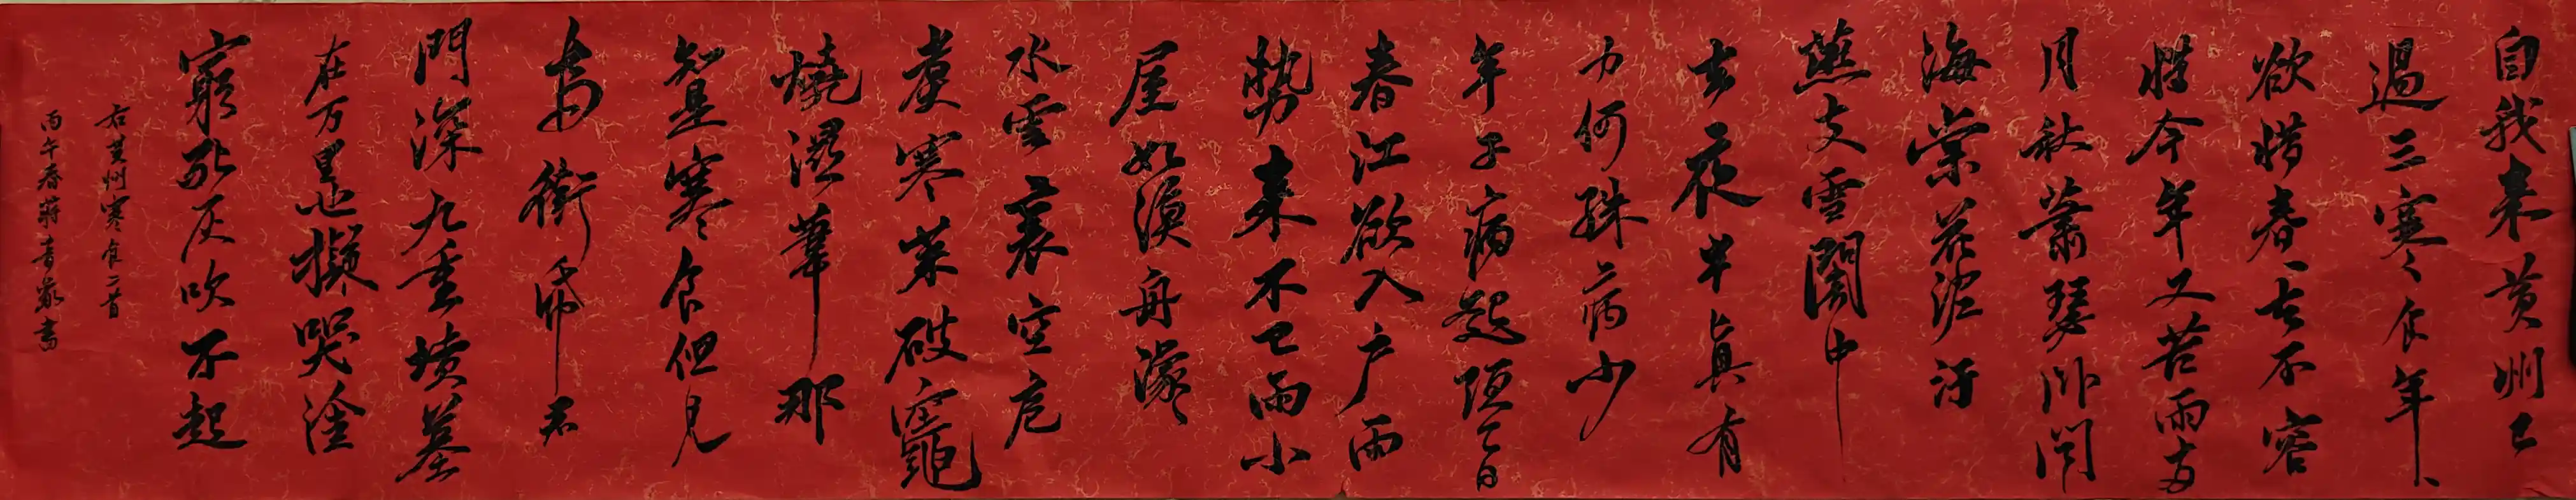 自我來黃州已
過三寒食年〻
欲惜春〻去不容
惜今年又苦雨兩
月秋蕭瑟卧聞
海棠花泥汙
燕支雪闇中
去夜半真有
力何殊病少
年子病起頭已白
春江欲入户雨
勢來不已雨小
屋如漁舟濛〻
水雲裏空庖
煮寒菜破竈
燒濕葦那
知是寒食但見
烏銜帋君
門深九重墳墓
在万里也擬哭塗
窮死灰吹不起
右黃州寒食二首
丙午春蔣書